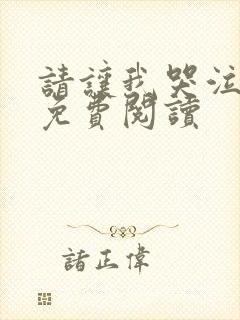 請讓我哭泣
免費閱讀
諸正偉